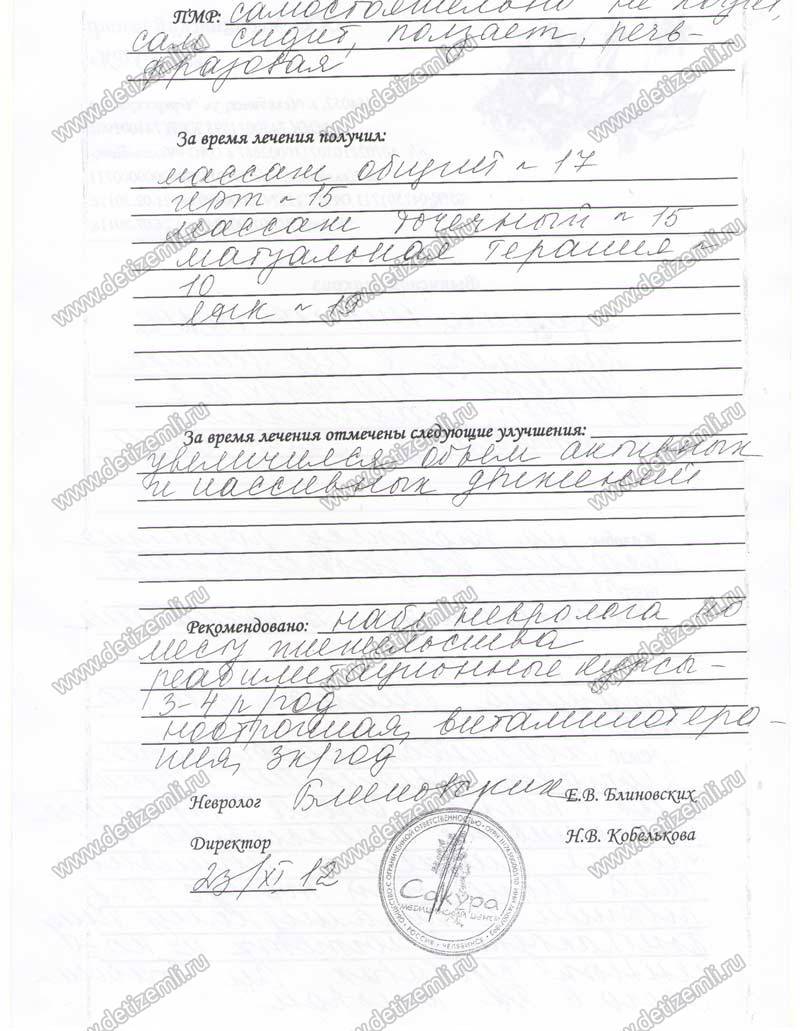 ПМР: самостоятельно не ходит,
сам сидит, ползает, речь-
фразовая
За время лечения получил:
массаж общий ~ 17
~ 15
массаж точечный ~ 15
мануальная терапия ~
10
За время лечения отмечены следующие улучшения:
увеличился объем активных
и пассивных движений
Рекомендовано: набл невролога по
месту жительства
реабилитационные курсы-
3-4 р/год
ноотропная, витаминотера-
пия,
Невролог Блиновских Е.В. Блиновских
Директор Н.В. Кобелькова
23/XI 12
Сакура
медицинский центр
ОБЩЕСТВО С ОГРАНИЧЕННОЙ ОТВЕТСТВЕННОСТЬЮ
РОССИЯ • ЧЕЛЯБИНСК
www.detizemli.ru